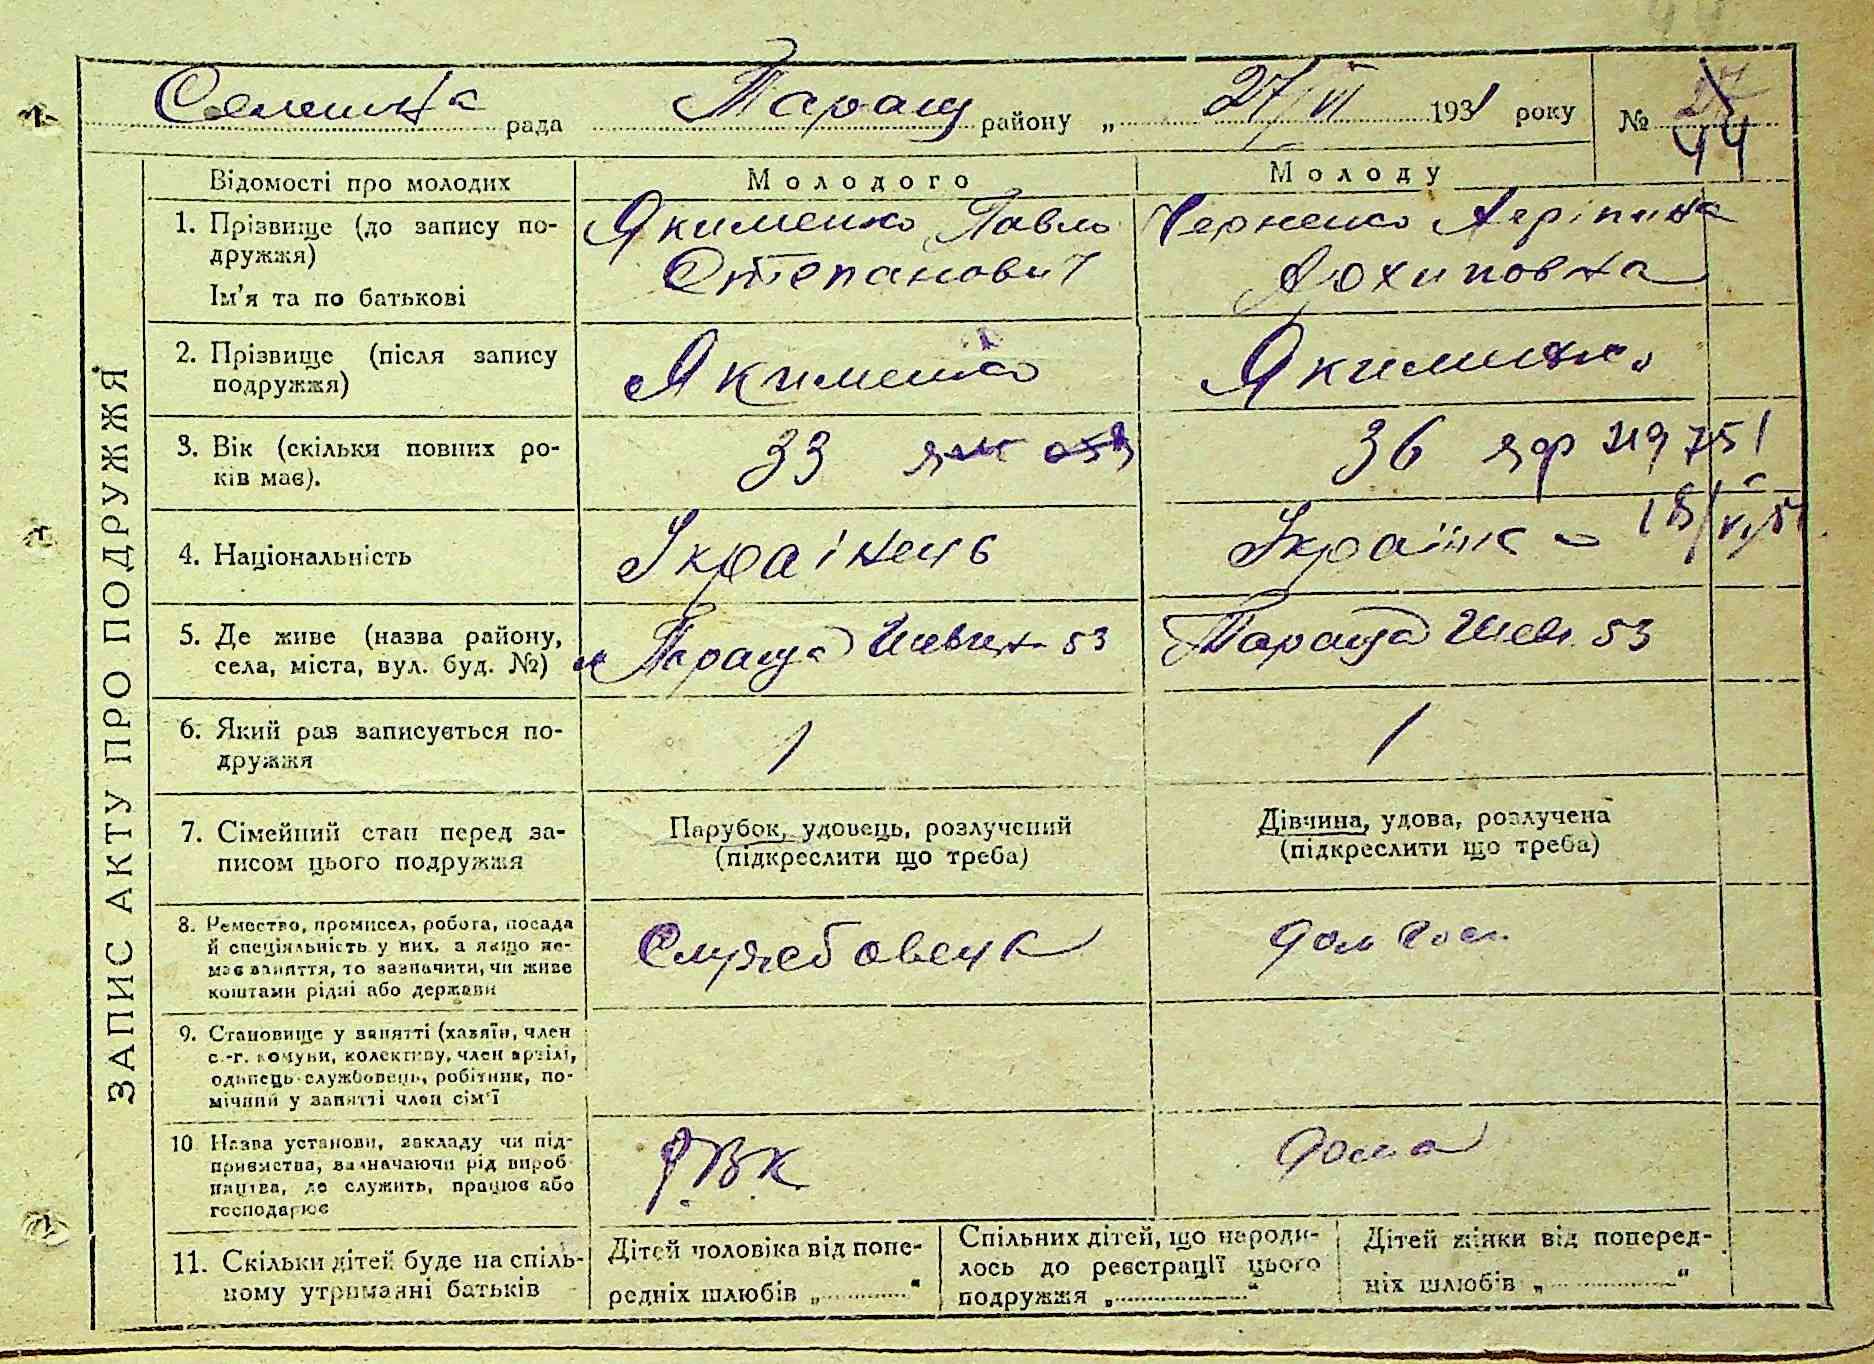 Селищна рада Таращ району „ 27/VI 1931 року № 44
ЗАПИС АКТУ ПРО ПОДРУЖЖЯ
Відомості про молодих Молодого Молоду
1. Прізвище (до запису по- Якименко Павло Черненко Агріпина
дружжя) Степанович Архиповна
Ім'я та по батькові
2. Прізвище (після запису Якименко Якименко
подружжя)
3. Вік (скільки повних ро- 33 36 ЯФ 419751
ків має).
18/VI 51
4. Національність Українець Українка
5. Де живе (назва району, м Тараща Шевчен 53 Тараща Шев. 53
села, міста, вул. буд. №)
6. Який раз записується по- 1 1
дружжя
7. Сімейний стан перед за- Парубок, удовець, розлучений Дівчина, удова, розлучена
писом цього подружжя (підкреслити що треба) (підкреслити що треба)
8. Ремество, промисел, робота, посада Службовець дом госп.
й спеціяльність у них, а якщо не-
має заняття, то зазначити, чи живе
коштами рідні або держави
9. Становище у занятті (хазяїн, член
с.-г. комуни, колективу, член артілі,
одинець-службовець, робітник, по-
мічний у занятті член сім'ї
10. Назва установи, закладу чи під- РВК дома
приємства, зазначаючи рід вироб-
ництва, де служить, працює або
господарює
11. Скільки дітей буде на спіль- Дітей чоловіка від попе- Спільних дітей, що народи- Дітей жінки від поперед-
ному утриманні батьків редніх шлюбів „ “ лось до реєстрації цього ніх шлюбів „ “
подружжя „ “